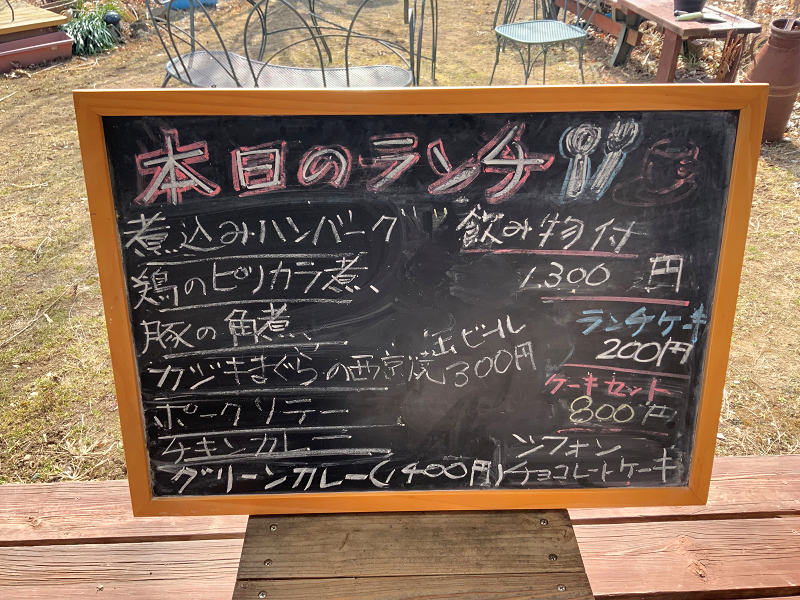 本日のランチ
煮込みハンバーグ
鶏のピリカラ煮、
豚の角煮、
カジキまぐろの西京焼
ポークソテー
チキンカレー
グリーンカレー(1400円)
缶ビール
300円
飲み物付
1,300円
ランチケーキ
200円
ケーキセット
800円
シフォン
チョコレートケーキ